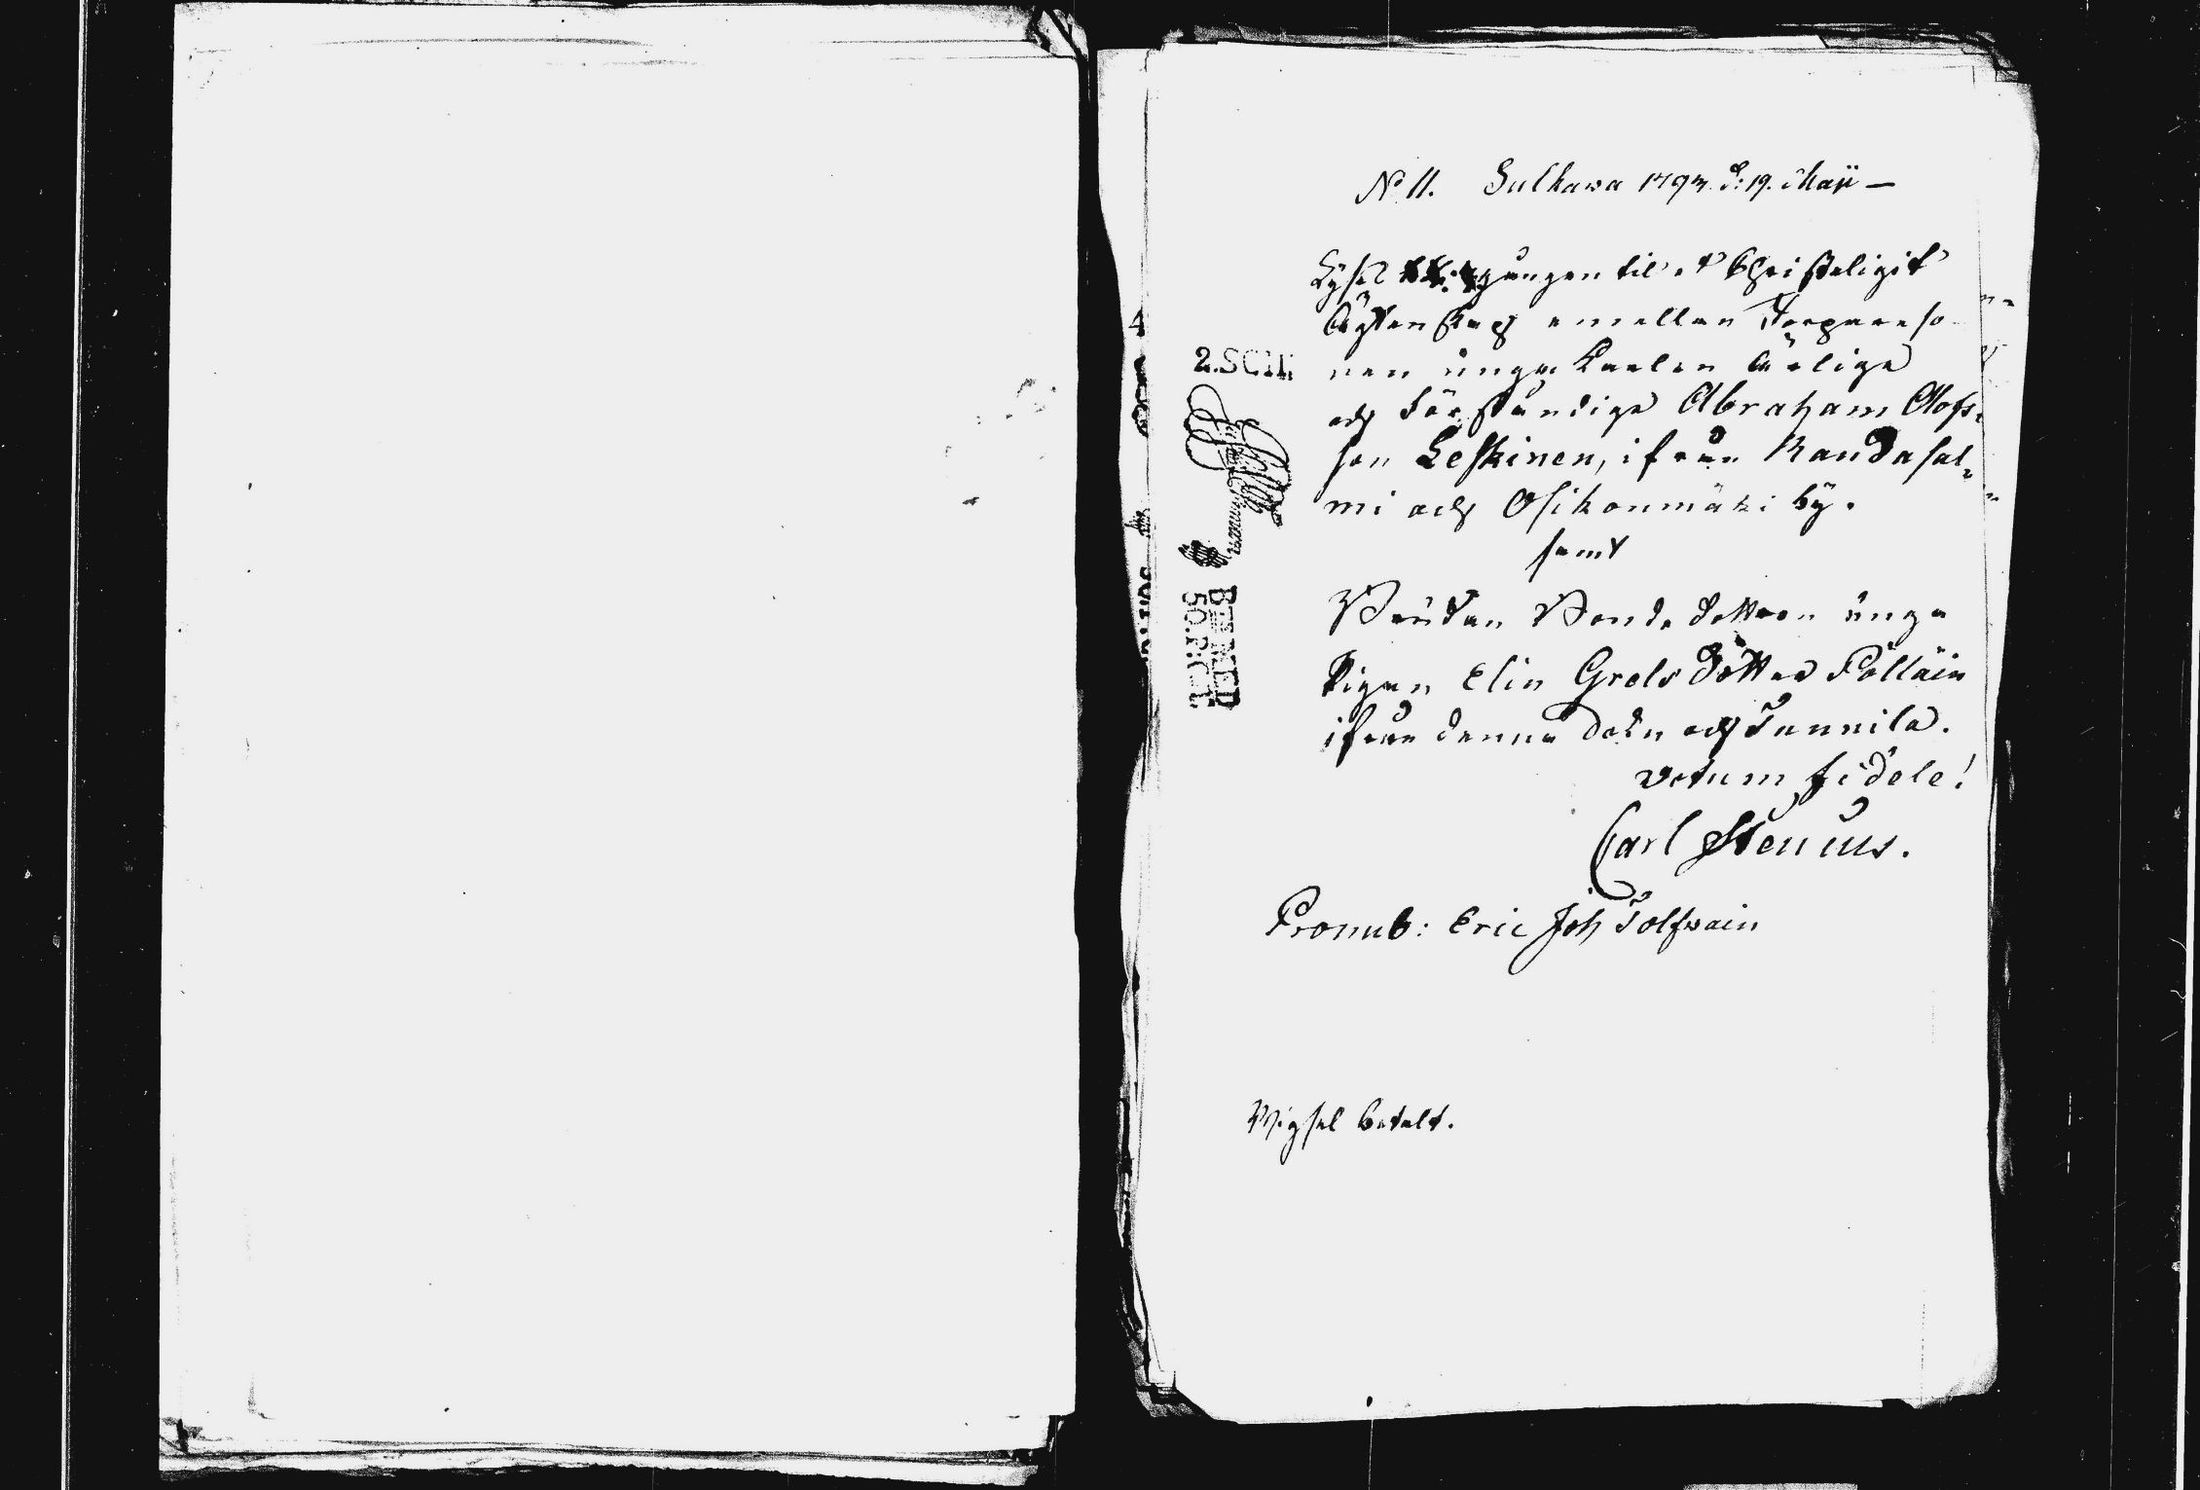 N:o 11. Sulkava 1793. d: 19. Maji —
Lyses gången til et Christeligit
Ägtenskap emellan Torpareso-
nen unga Karlen Ärlige
och Förståndige Abraham Olofs-
son Leskinen, ifrån Randasal-
mi och Osikonmäki by.
samt
Bruden Bonde dottren unga
Pigan Elin Grels dotter Pölläin
ifrån denna Sokn och Tunnila.
Votum fidele!
Carl Stenius.
Pronub: Eric Joh Tolfvain
Wigsel betalt.
2.SCH.